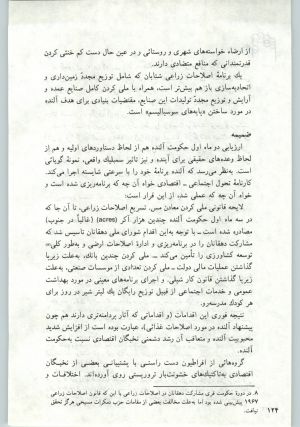 از ارضاء خواسته‌های شهری و روستائی و در عین حال دست کم خنثی کردن
قدرتمندانی که منافع متضادی دارند.
یك برنامهٔ اصلاحات زراعی شتابان که شامل توزیع مجددهٔ زمین‌داری و
اتحادیه‌سازی باز هم بیش‌تر است، همراه با ملی کردن کامل صنایع عمده و
آرایش و توزیع مجدد تولیدات این صنایع، مقتضیات بنیادی برای هدف آلنده
در مورد ساختن «پایه‌های سوسیالیسم» است.
ضمیمه
ارزیابی دو ماه اول حکومت آلنده هم از لحاظ دستاوردهای اولیه و هم از
لحاظ وعده‌های حقیقی برای آینده و نیز تاثیر سمبلیك واقعی، نمونهٔ گویائی
است. به‌نظر می‌رسد که آلنده برنامهٔ خود را با سرعتی شایسته اجرا می‌کند.
کارنامهٔ تحول اجتماعی ـ اقتصادی خواه آن چه که برنامه‌ریزی شده است و
خواه آن چه که عملی شد، از این قرار است:
لایحه قانونی ملی کردن معادن مس، تسریع اصلاحات زراعی، تا آن جا که
در سه ماه اول حکومت آلنده چندین هزار آکر (acres) (غالباً در جنوب)
مصادره شده است ـ با توجه به‌این اقدام شورای ملی دهقانان تاسیس شد که
مشارکت دهقانان را در برنامه‌ریزی و ادارهٔ اصلاحات ارضی و به‌طور کلی
توسعه کشاورزی را تأمین می‌کند ـ ملی کردن چندین بانك، به‌علت زیرپا
گذاشتن عملیات مالی دولت ـ ملی کردن تعدادی از موسسات صنعتی، به‌علت
زیرپا گذاشتن قانون کار شیلی. و اجرای برنامه‌های معینی در مورد بهداشت
عمومی و خدمات اجتماعی از قبیل توزیع رایگان یك لیتر شیر در روز برای
هر کودك مدرسه‌رو.
نتیجه فوری این اقدامات (و اقداماتی که آثار پردامنه‌تری دارند هم چون
پیشنهاد آلنده در مورد اصلاحات غذائی)، عبارت بوده است از افزایش شدید
محبوبیت آلنده و متعاقب آن رشد دشمنی نخبگان اقتصادی نسبت به‌حکومت
آلنده.
گروه‌هائی از افراطیون دست راستی با پشتیبانی بعضی از نخبگان
اقتصادی به‌تاکتیك‌های خشونت‌بار تروریستی روی آورده‌اند. اختلافات و
۸. در دورهٔ حکومت فری مشارکت دهقانان در اصلاحات زراعی با این که قانون اصلاحات زراعی
۱۹۶۷ پیش‌بینی شده بود اما به‌علت مخالفت بعضی از مقامات حزب دمکرات مسیحی هرگز تحقق
نیافت.
۱۲۴